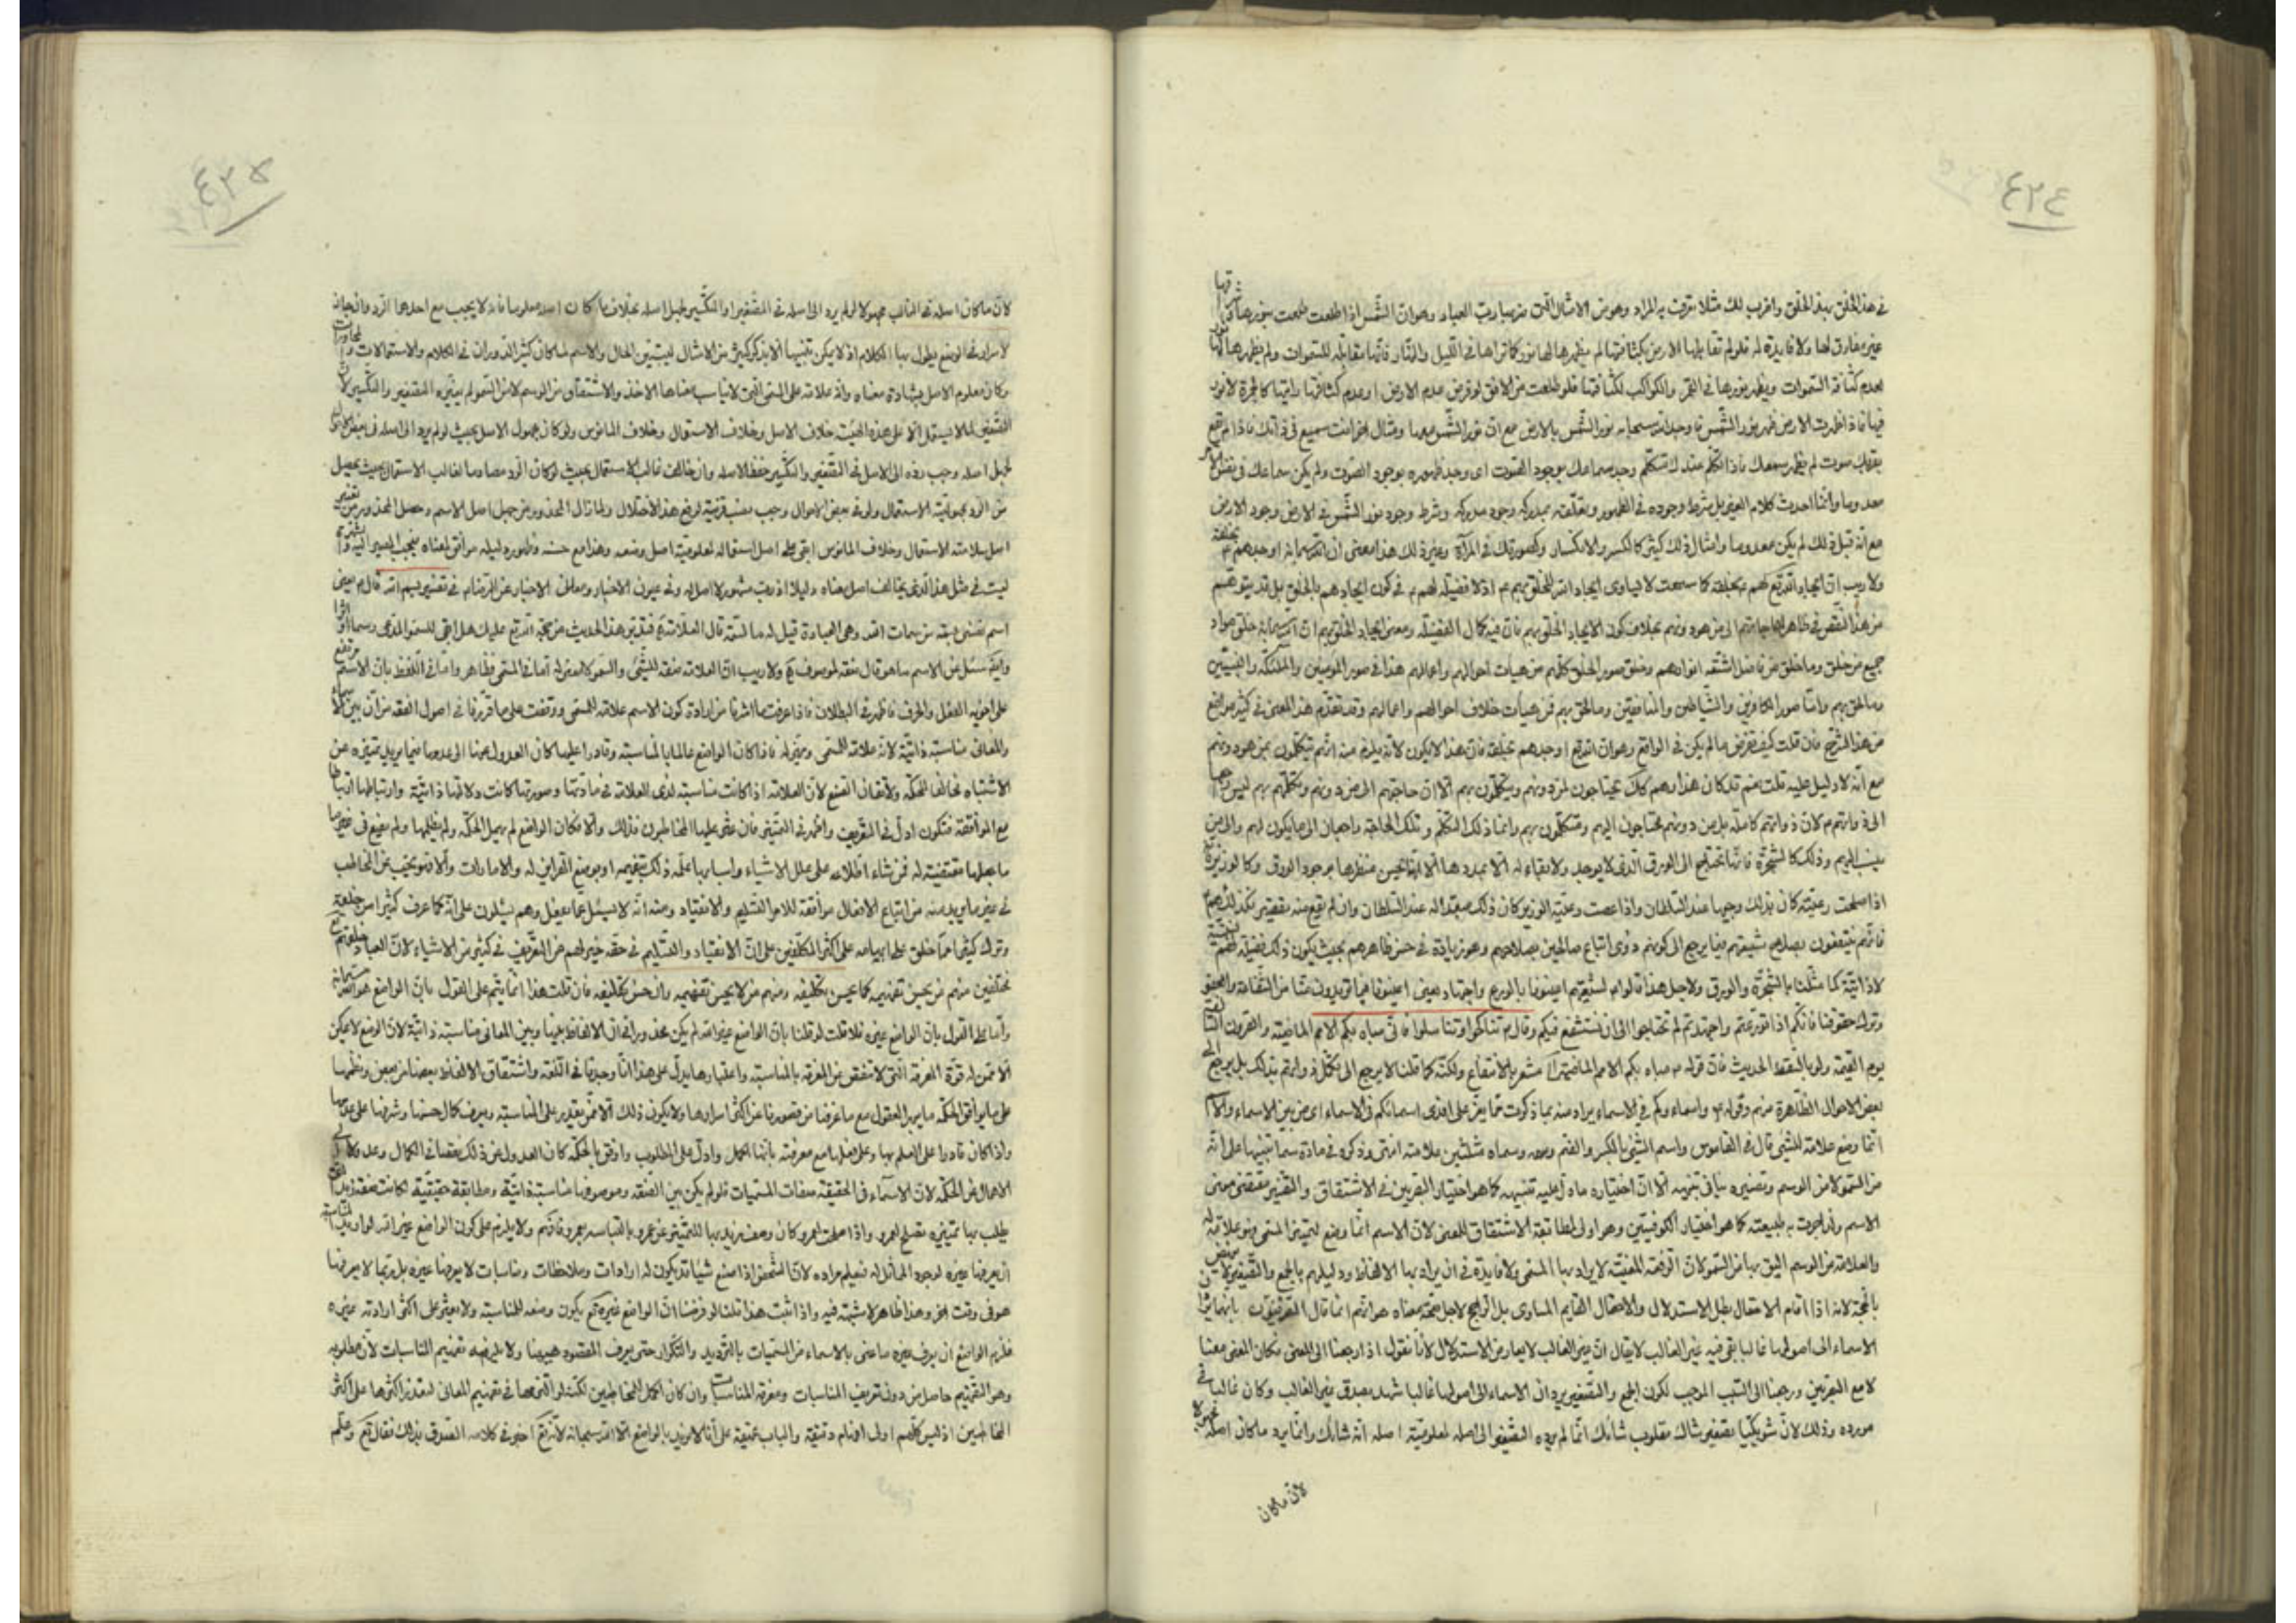 ٤٢٤
في هذا الخلق بهذا الخلق واضرب لك مثلا تعرف به المراد وهو من الامثال التي ضربها ربك للعباد وهو ان الشمس اذا طلعت طلعت بنورها
غير مفارق لها ولا فاقدة له فلو لم تقابلها الارض بكثافتها لم يظهر لها نور كما تراها في الليل والنهار فانها مقابلة للسموات ولم يظهر
لعدم كثافة السموات ويظهر نورها في القمر والكواكب لكثافتها فلو طلعت من الافق لو فرض عدم الارض او عدم كثافتها رايتها كالجمرة لا نور
فيها فاذا ظهرت الارض ظهر نور الشمس فاوجد الله سبحانه نور الشمس بالارض مع ان نور الشمس معها ومثال اخر انت سميع في ذاتك فاذا لم يقع
بقربك صوت لم يظهر سمعك فاذا تكلم عندك متكلم وجد سماعك بوجود الصوت اى وجد ظهوره بوجود الصوت ولم يكن سماعك في نفس
معدوما وانما احدث كلام الغير بل شرط وجوده في الظهور وتعلقه بمدركه وجود مدركه وشرط وجود نور الشمس في الارض وجود الارض
مع انه قبل ذلك لم يكن معدوما وامثال ذلك كثير كالكسر والانكسار وكصورتك في المرآة وغير ذلك هذا معنى ان الله سبحانه اوجدهم
ولا ريب ان ايجاد الله تع لهم بخلقه كما سمعت لا يساوى ايجاد الله للخلق بهم ع اذ لا فضيلة لهم في كون ايجادهم بالخلق بل قد يتوهم
من هذا النقص في ظاهر الى من هو دونهم بخلاف كون الايجاد الخلق بهم فان فيه كمال الفضيلة ومعنى ايجاد الخلق بهم ان الله سبحانه خلق مواد
جميع من خلق وما خلق من فاضل اشعة انوارهم وخلق صور الخلق كلهم من هيآت احوالهم واعمالهم هذا في صور المومنين والملئكة والنبيين
ومن لحق بهم واما صور الكافرين والشياطين والمنافقين ومن لحق بهم فمن هيآت خلاف احوالهم واعمالهم وقد تقدم هذا المعنى في كثير مواضع
من هذا الشرح فان قلت كيف تفرض ما لم يكن في الواقع وهو ان الله تع اوجدهم بخلقه فان هذا لا يكون لانه يلزم منه انهم يتكلون بمن هو دونهم
مع انه لا دليل عليه قلت نعم قد كان هذا وهم كذلك يحتاجون لمن دونهم ويتكلون بهم الا ان حاجتهم الى من دونهم وتكلهم بهم ليس
الى ذواتهم لان ذواتهم كاملة بل من دونهم محتاجون اليهم ومتكلون بهم وانما ذلك التكل وتلك الحاجة راجعان الى ما يكون لهم والى من
ينسب اليهم وذلك كالشجرة فانها تحتاج الى الورق الذى لا يوجد ولا بقاء له الا بمددها الا انها يحسن منظرها بوجود الورق وكالوزير
اذا صلحت رعيته كان بذلك وجيها عند السلطان واذا عصت رعية الوزير كان ذلك عند السلطان وان لم يقع منه تقصير فكذلك هم
فانهم ينتفعون بصلاح شيعتهم فيما يرجع الى كونهم ذوى اتباع صالحين بصلاحهم وهو زيادة في حسن ظاهرهم بحيث يكون ذلك فضيلة لهم
لا ذاتية كما مثلنا بالشجرة والورق ولاجل هذا قالوا لشيعتهم اعينونا بالورع واجتهاد يعنى اعينونا فيما تريدون منا من الشفاعة
وترك حقوقنا فانكم اذا تورعتم واجتهدتم لم تحتاجوا الى ان نستشفع فيكم وقال تناكحوا تناسلوا فانى مباه بكم الامم الماضية والقرون
يوم القيمة ولو بالسقط الحديث فان قوله ص مباه بكم الامم الماضية مشعر بالانتفاع ولكنه كما قلنا لا يرجع الى تكمل ذواتهم بذلك بل يرجع الى
بعض الاحوال الظاهرة منهم وقوله واسماءكم في الاسماء يراد منه بما ذكرت اى من بين الاسماء والاسم
انما وضع علامة للشئ قال في القاموس واسم الشئ بالكسر والضم وسمه وسماه مثلثين علامته انتهى وذكره في مادة سما تنبيها على انه
من السمو لا من الوسم وتفسيره ينافى تنبيهه الا ان اختياره ما دل عليه تنبيهه كما هو اختيار البصريين في الاشتقاق والتفسير مقتضى معنى
الاسم كما هو اختيار الكوفيين وهو اولى لمطابقة الاشتقاق للمعنى لان الاسم انما وضع لتمييز المسمى فهو علامة له
والعلامة من الوسم اليق بها من السمو لان الرفعة المعنية لا يراد بها المسمى ولا فايدة في ان يراد بها الالفاظ ودليلهم بالجمع والتصغير ليس
بالحجة لانه اذا قام الاحتمال بطل الاستدلال والاحتمال القايم المساوى بل الراجح لاجل صحة معناه هو انهم انما قال الصرفيون
الاسماء الى اصولها غالبا بقى فيه غير الغالب لا يقال ان غير الغالب لا يعارض الاستدلال لانا نقول اذا رجعنا الى المعنى فكان المعنى معنا
لا مع البصريين ورجعنا الى السبب الموجب لكون الجمع والتصغير يردان الاسماء الى اصولها غالبا شهد بصدق غير الغالب وكان غالبا في
مورده وذلك لان شويكيا تصغير شاك مقلوب شائك انما لم يرده التصغير الى اصله لمعلومية اصله انه شائك وانما يرد ما كان اصله
لان ما كان
٤٢٥
لان ما كان اصله في الغالب مجهولا لو لم يرد الى اصله في التصغير او التكسير لجهل اصله بخلاف ما كان اصله معلوما فانه لا يجب مع احدهما الرد وان جاز
لاسرار في الوضع يطول بها الكلام اذ لا يمكن تبيينها الا بذكر كثير من الامثال ليتبين الحال والاسم لما كان كثير الدوران في الكلام والاستعمالات
وكان معلوم الاصل بشهادة معناه وانه علامة على المسمى التى لا يناسب معناها الا اخذ والاشتقاق من الوسم لا من السمو لم يغيره التصغير والتكسير لان
لئلا يستعمل الا على هذه الهيئة خلاف الاصل وخلاف الاستعمال وخلاف المانوس ولو كان مجهول الاصل بحيث لو لم يرد الى اصله في بعض
لجهل اصله وجب رده الى الاصل في التصغير والتكسير حفظا لاصله وان خالف غالب الاستعمال بحيث لو كان الرد مصادما لغالب الاستعمال بحيث يحصل
من الرد مجهولية الاستعمال ولو في بعض الاحوال وجب نصب قرينة لرفع هذا الاختلال ولما زال المحذور من جهل اصل الاسم وحصل المحذور من
اصل سلامته الاستعمال وخلاف المانوس ابقى على اصل استعماله لمعلومية اصل وضعه وهذا مع حسنه وظهوره دليله موافق لمعناه فيجب المصير اليه
ليت في مثل هذا الذى يخالف اصل معناه دليلا اذ رب مشهور لا اصل له وفي عيون الاخبار ومعانى الاخبار عن الرضا في تفسير بسم الله قال يعنى
اسم نفسى بسمة من سمات الله وهى العبادة قيل له ما السمة قال العلامة فتدبر هذا الحديث من
وايضا سئل عن الاسم ما هو قال صفة لموصوف ولا ريب ان العلامة صفة للشئ والسمو اما في المسمى فظاهر واما في اللفظ بان الاسم
على اخويه الفعل والحرف فاظهر في البطلان فاذا عرفت ما اشرنا من ارادة كون الاسم علامة للمسمى ووقفت على ما قررنا في اصول الفقه من ان بين
والمعانى مناسبة ذاتية لانه علامة للمسمى ومميز له فاذا كان الواضع عالما بالمناسبة وقادرا عليها كان العدول عنها الى عدمها فيما يريد تمييزه عن
الاشتباه مخالفا للحكمة ولاتقان الصنع لان العلامة اذا كانت مناسبة لذى العلامة في مادتها وصورتها كانت دلالتها ذاتية وارتباطها
مع الموافقة فتكون ادل في التعريف واظهر في التمييز فان عثر عليها المخاطبون فذلك والا فكان الواضع لم يهمل الحكمة ولم يظلمها ولم يضع في غيرها
ما جعلها مقتضية له فمن شاء اطلاعه على علل الاشياء واسبابها علمه ذلك بتفهيمه او بوضع القراين له والامارات والا فهو يحتجب عن المخاطب
في غير ما يريد منه من اتباع الافعال موافقة للامر التسليم والانقياد ومنه انه لا يسئل عما يفعل وهم يسئلون على انه كما عرف كثيرا من خلقه
وترك كثيرا مما خلق على ابهامه على اكثر المكلفين على ان الانقياد والتسليم في حقه خير لهم من التعريف في كثير من الاشياء لان العباد
مختلفين منهم من يحسن تفهيمه كما يحسن تكليفه ومنهم من لا يحسن تفهيمه وان حسن تكليفه فان قلت هذا انما يتم على القول بان الواضع هو الله
واما على القول بان الواضع غيره فلا قلت لو قلنا بان الواضع غير الله لم يكن محذورا في ان الالفاظ بينها وبين المعانى مناسبة ذاتية لان الوضع لا يمكن
الا ممن له قوة المعرفة التى لا تنقص عن المعرفة بالمناسبة واعتبارها يدل على هذا انا وجدنا في اللغة واشتقاق الالفاظ بعضها من بعض ونظمها
على ما يوافق الحكمة ما يبهر العقول مع ما عرفنا من قصورنا عن اكثر اسرارها ولا يكون ذلك الا ممن يقدر على المناسبة ويعرف كمال حسنها وشرفها على
واذا كان قادرا على العلم بها وعلى فعلها مع معرفته بانها اكمل وادل على المطلوب واوفق بالحكمة كان العدول عن ذلك نقصا في الكمال وعدولا
الاهمال عن الحكمة لان الاسماء في الحقيقة صفات المسميات فلو لم يكن بين الصفة وموصوفها مناسبة ذاتية ومطابقة حقيقية لكانت صفة زيد
يطلب بها تمييزه تصلح لعمرو واذا صلحت لعمرو كان وصف زيد بها للتمييز عن عمرو بالتباسه بعمرو فافهم ولا يلزم على كون الواضع غير الله
ان يعرفها غيره لوجود المماثل له فيعلم مراده لان الشخص اذا صنع شيئا قد يكون له ارادات وملاحظات ومناسبات لا يعرفها غيره بل ربما لا يعرفها
هو في وقت اخر وهذا ظاهر لا شبهة فيه واذا ثبت هذا قلنا لو فرضنا ان الواضع غيره تع يكون وضعه للمناسبة ولا يعثر على اكثر ارادته غيره
فلزم الواضع ان يعرف غيره ما عنى بالاسماء من المسميات بالترديد والتكرار حتى يعرف المقصود ولا يلزمه تفهيم المناسبات لان مطلوبه
وهو التفهيم حاصل من دون تعريف المناسبات ومعرفة المناسبات وان كان اكمل للمخاطبين لكنه لو التزمها في تفهيم المعانى لتعذر اكثرها على اكثر
المخاطبين اذ ليس كلهم اولى افهام دقيقة والباب عميقة على انا لا نريد بالواضع الا الله سبحانه لانه تع اخبر في كلامه الصدق بذلك فقال تع وعلم